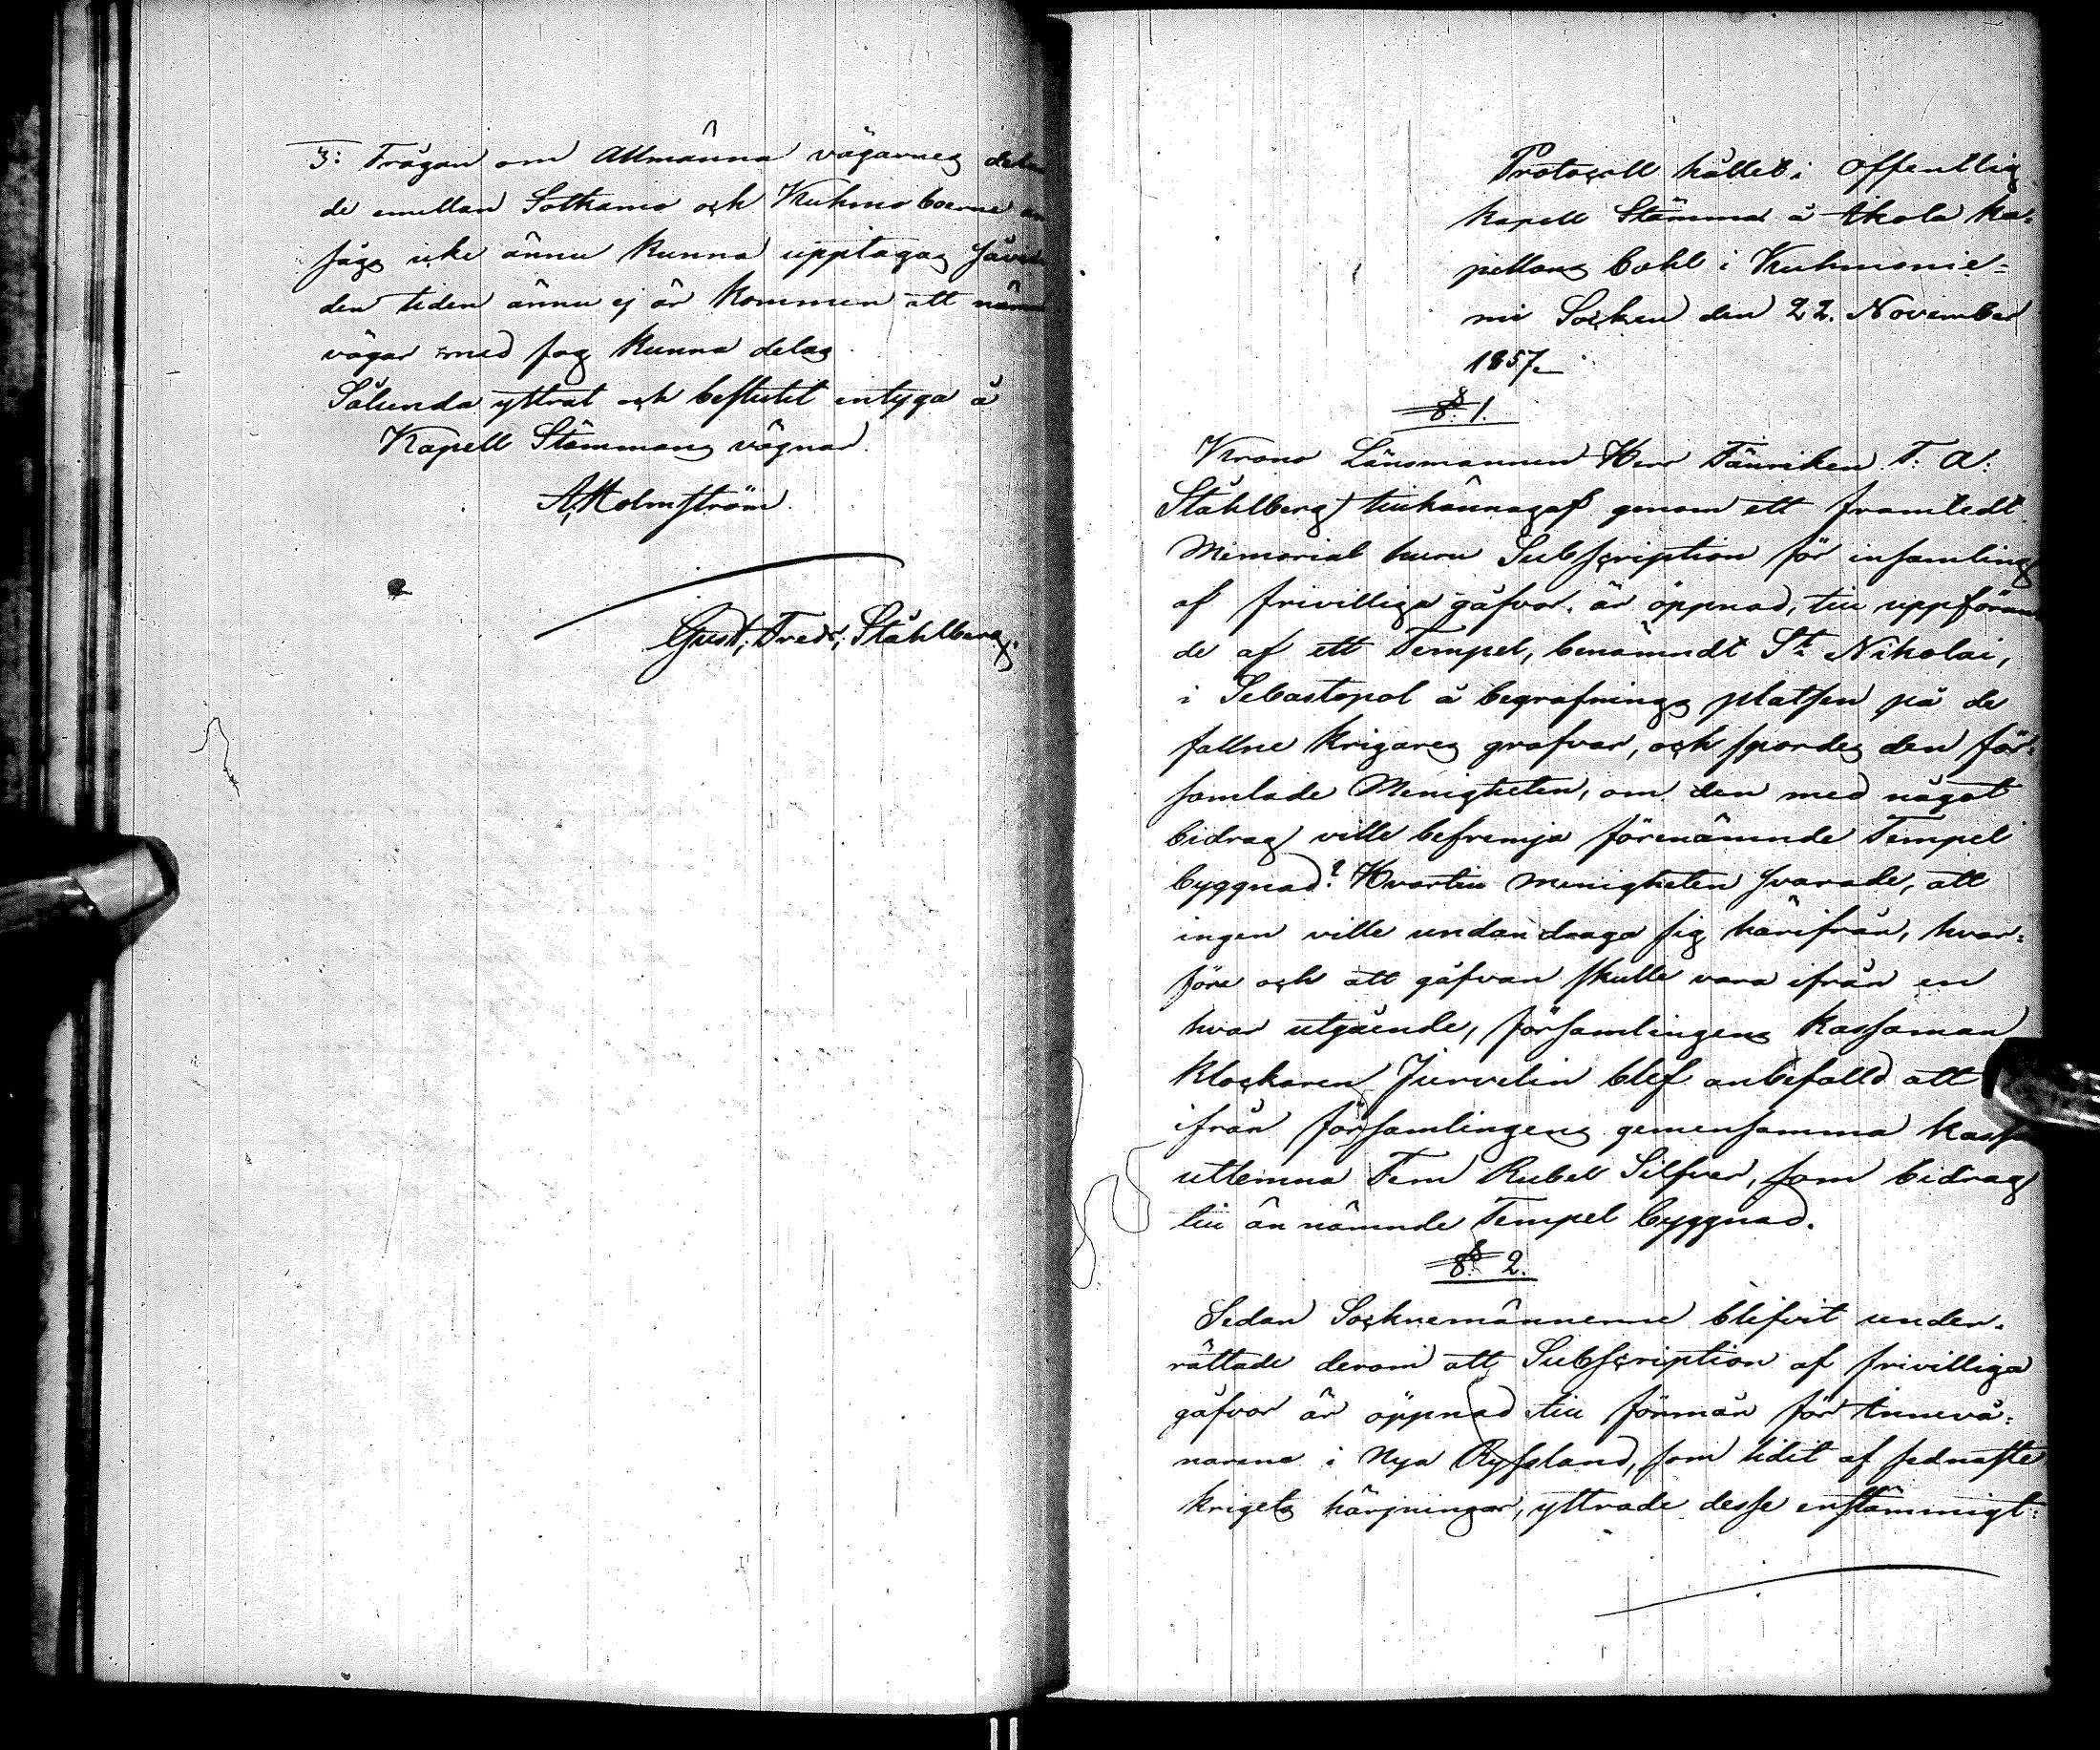 3: Frågan om Allmänna vägarnes
de emellan Sotkamo och Kuhmo boerne
sågs icke ännu kunna upptagas
den tiden ännu ej är kommen att
vägar med fog kunna delas
Sålunda yttrat och beslutit intyga å
Kapell Stämmans vägnar.
A Holmström.
Gust; Fredr; Ståhlberg.
Protocoll hållet i Offentlig
Kapell Stämma å Akola ka-
pellans bohl i Kuhmonie-
mi Socken den 22. November
1857.
§ 1.
Krono Länsmannen Herr Fänriken F: A:
Ståhlberg tillkännagaf genom ett framledt
Memorial huru Subscription för insamling
af frivilliga gåfvor, är öppnad, till uppföran
de af ett Tempel, benämndt St Nikolai,
i Sebastopol å begrafnings platsen på de
fallne krigares grafvar, och spordes den för-
samlade Menigheten, om den med något
bidrag ville befremja förenämnde Tempel
byggnad? Hvartill menigheten svarade, att
ingen ville undandraga sig härifrån, hvar-
före och att gåfvan skulle vara ifrån en
hvar utgående, församlingens kassaman
Klockaren Jurvelin blef anbefalld att
ifrån församlingens gemensamma kassa
utlemna Fem Rubel Silfver, som bidrag
till än nämnde Tempel byggnad.
§ 2.
Sedan Socknemännerne blifvit under-
rättade derom att Subscription af frivilliga
gåfvor är öppnad till förmån för Innevå-
narene i Nya Ryssland, som lidit af sednaste
krigets härjningar, yttrade desse enstämmigt: